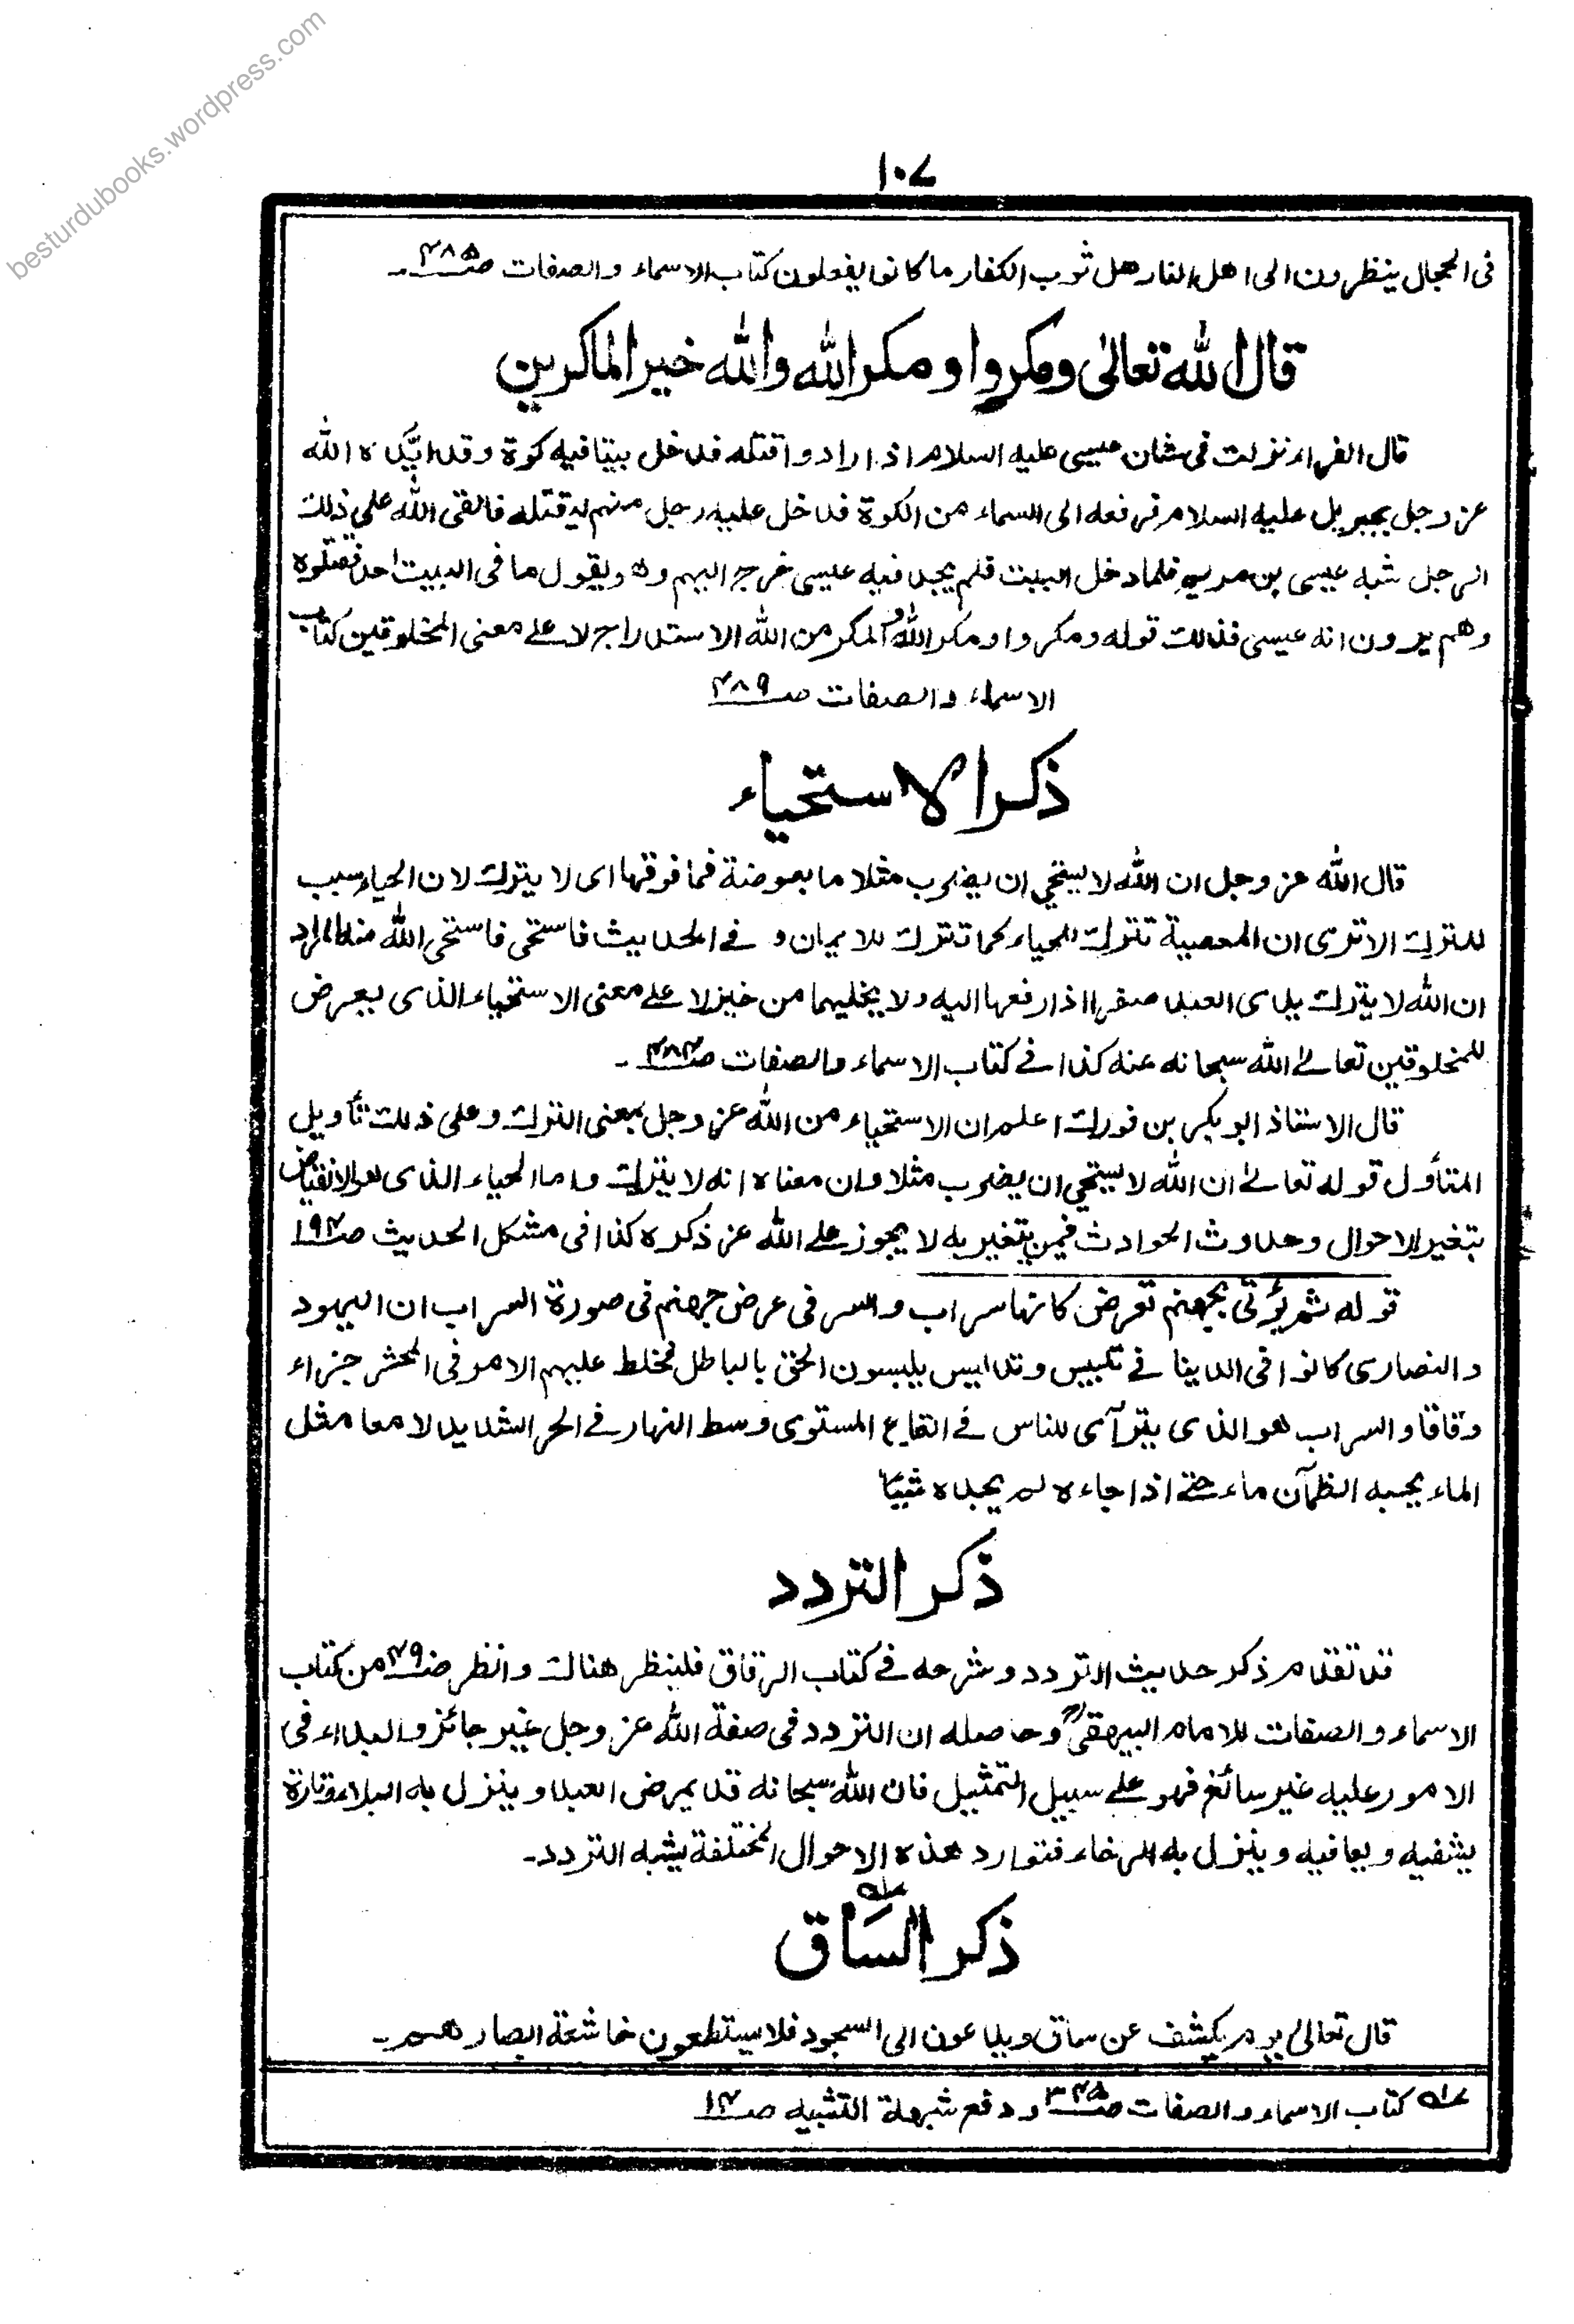 besturdubooks.wordpress.com
۱۰۷
فى الحجال ينظرون الى اهل النار هل ثوب الكفار ما كانوا يفعلون كتاب الاسماء والصفات صـ۴۸۵ـ
قال الله تعالىٰ ومكروا ومكر الله والله خير الماكرين
قال الفراء نزلت فى شان عيسى عليه السلام اذ ارادوا قتله فدخل بيتا فيه كوة وقد ايّده الله
عز وجل بجبريل عليه السلام فرفعه الى السماء من الكوة فدخل عليه رجل منهم ليقتله فالقى الله على ذلك
الرجل شبه عيسى بن مريم فلما دخل البيت فلم يجد فيه عيسى خرج اليهم وهو يقول ما فى البيت احد فقتلوه
وهم يرون انه عيسى فذلك قوله ومكروا ومكر الله والمكر من الله الاستدراج لا على معنى المخلوقين كتاب
الاسماء والصفات صـ۴۸۹
ذكر الاستحياء
قال الله عز وجل ان الله لا يستحي ان يضرب مثلا ما بعوضة فما فوقها اى لا يترك لان الحياء سبب
للترك الا ترى ان المعصية تترك للحياء كما تترك للايمان و فى الحديث فاستحى فاستحى الله منه المراد
ان الله لا يترك يدى العبد صفرا اذا رفعها اليه ولا يخليهما من خير لا على معنى الاستحياء الذى يعرض
للمخلوقين تعالى الله سبحانه عنه كذا فى كتاب الاسماء والصفات صـ۴۸۳ـ
قال الاستاذ ابو بكر بن فورك اعلم ان الاستحياء من الله عز وجل بمعنى الترك وعلى ذلك تأويل
المتأول قوله تعالىٰ ان الله لا يستحي ان يضرب مثلا وان معناه انه لا يترك واما الحياء الذى هو الانقباض
بتغير الاحوال وحدوث الحوادث فيمن يتغير به لا يجوز على الله عز ذكره كذا فى مشكل الحديث صـ۱۹۴
قوله ثم يؤتى بجهنم تعرض كانها سراب والسر فى عرض جهنم فى صورة السراب ان اليهود
والنصارى كانوا فى الدينا فى تلبيس وتدليس يلبسون الحق بالباطل فخلط عليهم الامر فى المحشر جزاء
وفاقا والسراب هو الذى يترآى للناس فى القاع المستوى وسط النهار فى الحر الشديد لامعا مثل
الماء يحسبه الظمآن ماء حتى اذا جاءه لم يجده شيئا
ذكر التردد
قد تقدم ذكر حديث التردد وشرحه فى كتاب الرقاق فلينظر هنالك وانظر من كتاب
الاسماء والصفات للامام البيهقىؒ وحاصله ان التردد فى صفة الله عز وجل غير جائز والبداء فى
الامور عليه غير سائغ فهو على سبيل التمثيل فان الله سبحانه قد يمرض العبد وينزل به البلاء وتارة
يشفيه ويعافيه وينزل به الرخاء فتوارد هذه الاحوال المختلفة يشبه التردد۔
ذكر السَّاق لـه
قال تعالىٰ يوم يكشف عن ساق ويدعون الى السجود فلا يستطعون خاشعة ابصارهم۔
لـه كتاب الاسماء والصفات صـ۳۴۵ ودفع شبهة التشبيه صـ۱۴